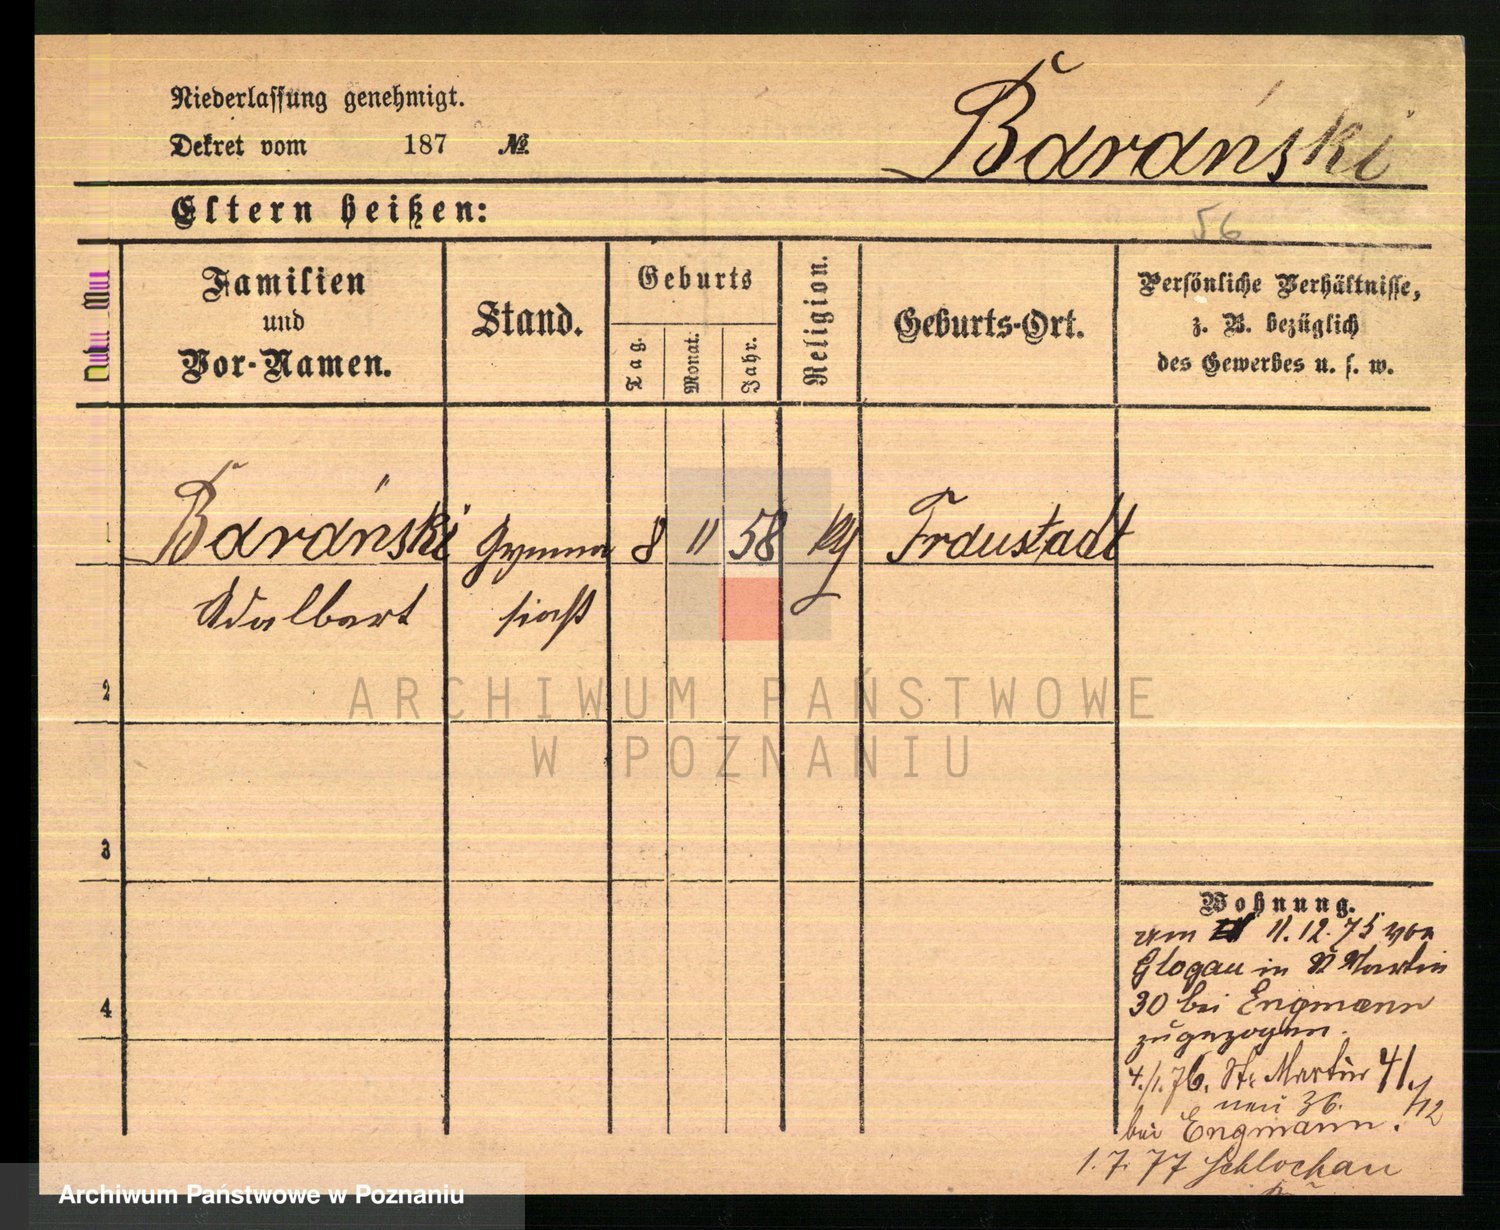 Niederlassung genehmigt.
Dekret vom 187 №
Barański
Eltern heißen:
56
Familien
und
Vor-Namen.
Stand.
Geburts
Tag.
Monat.
Jahr.
Religion.
Geburts-Ort.
Persönliche Verhältnisse,
z. B. bezüglich
des Gewerbes u. s. w.
Barański Gymna 8 11 58 Fraustadt
Adalbert siast
2
3
4
ARCHIWUM PAŃSTWOWE
W POZNANIU
Wohnung.
am 11.12.75 von
Glogau in St Martin
30 bei Engmann
zugezogen.
4./1.76. St. Martin 41.
neu 36. /12
bei Engmann.
1.7.77 Schlochau
Archiwum Państwowe w Poznaniu